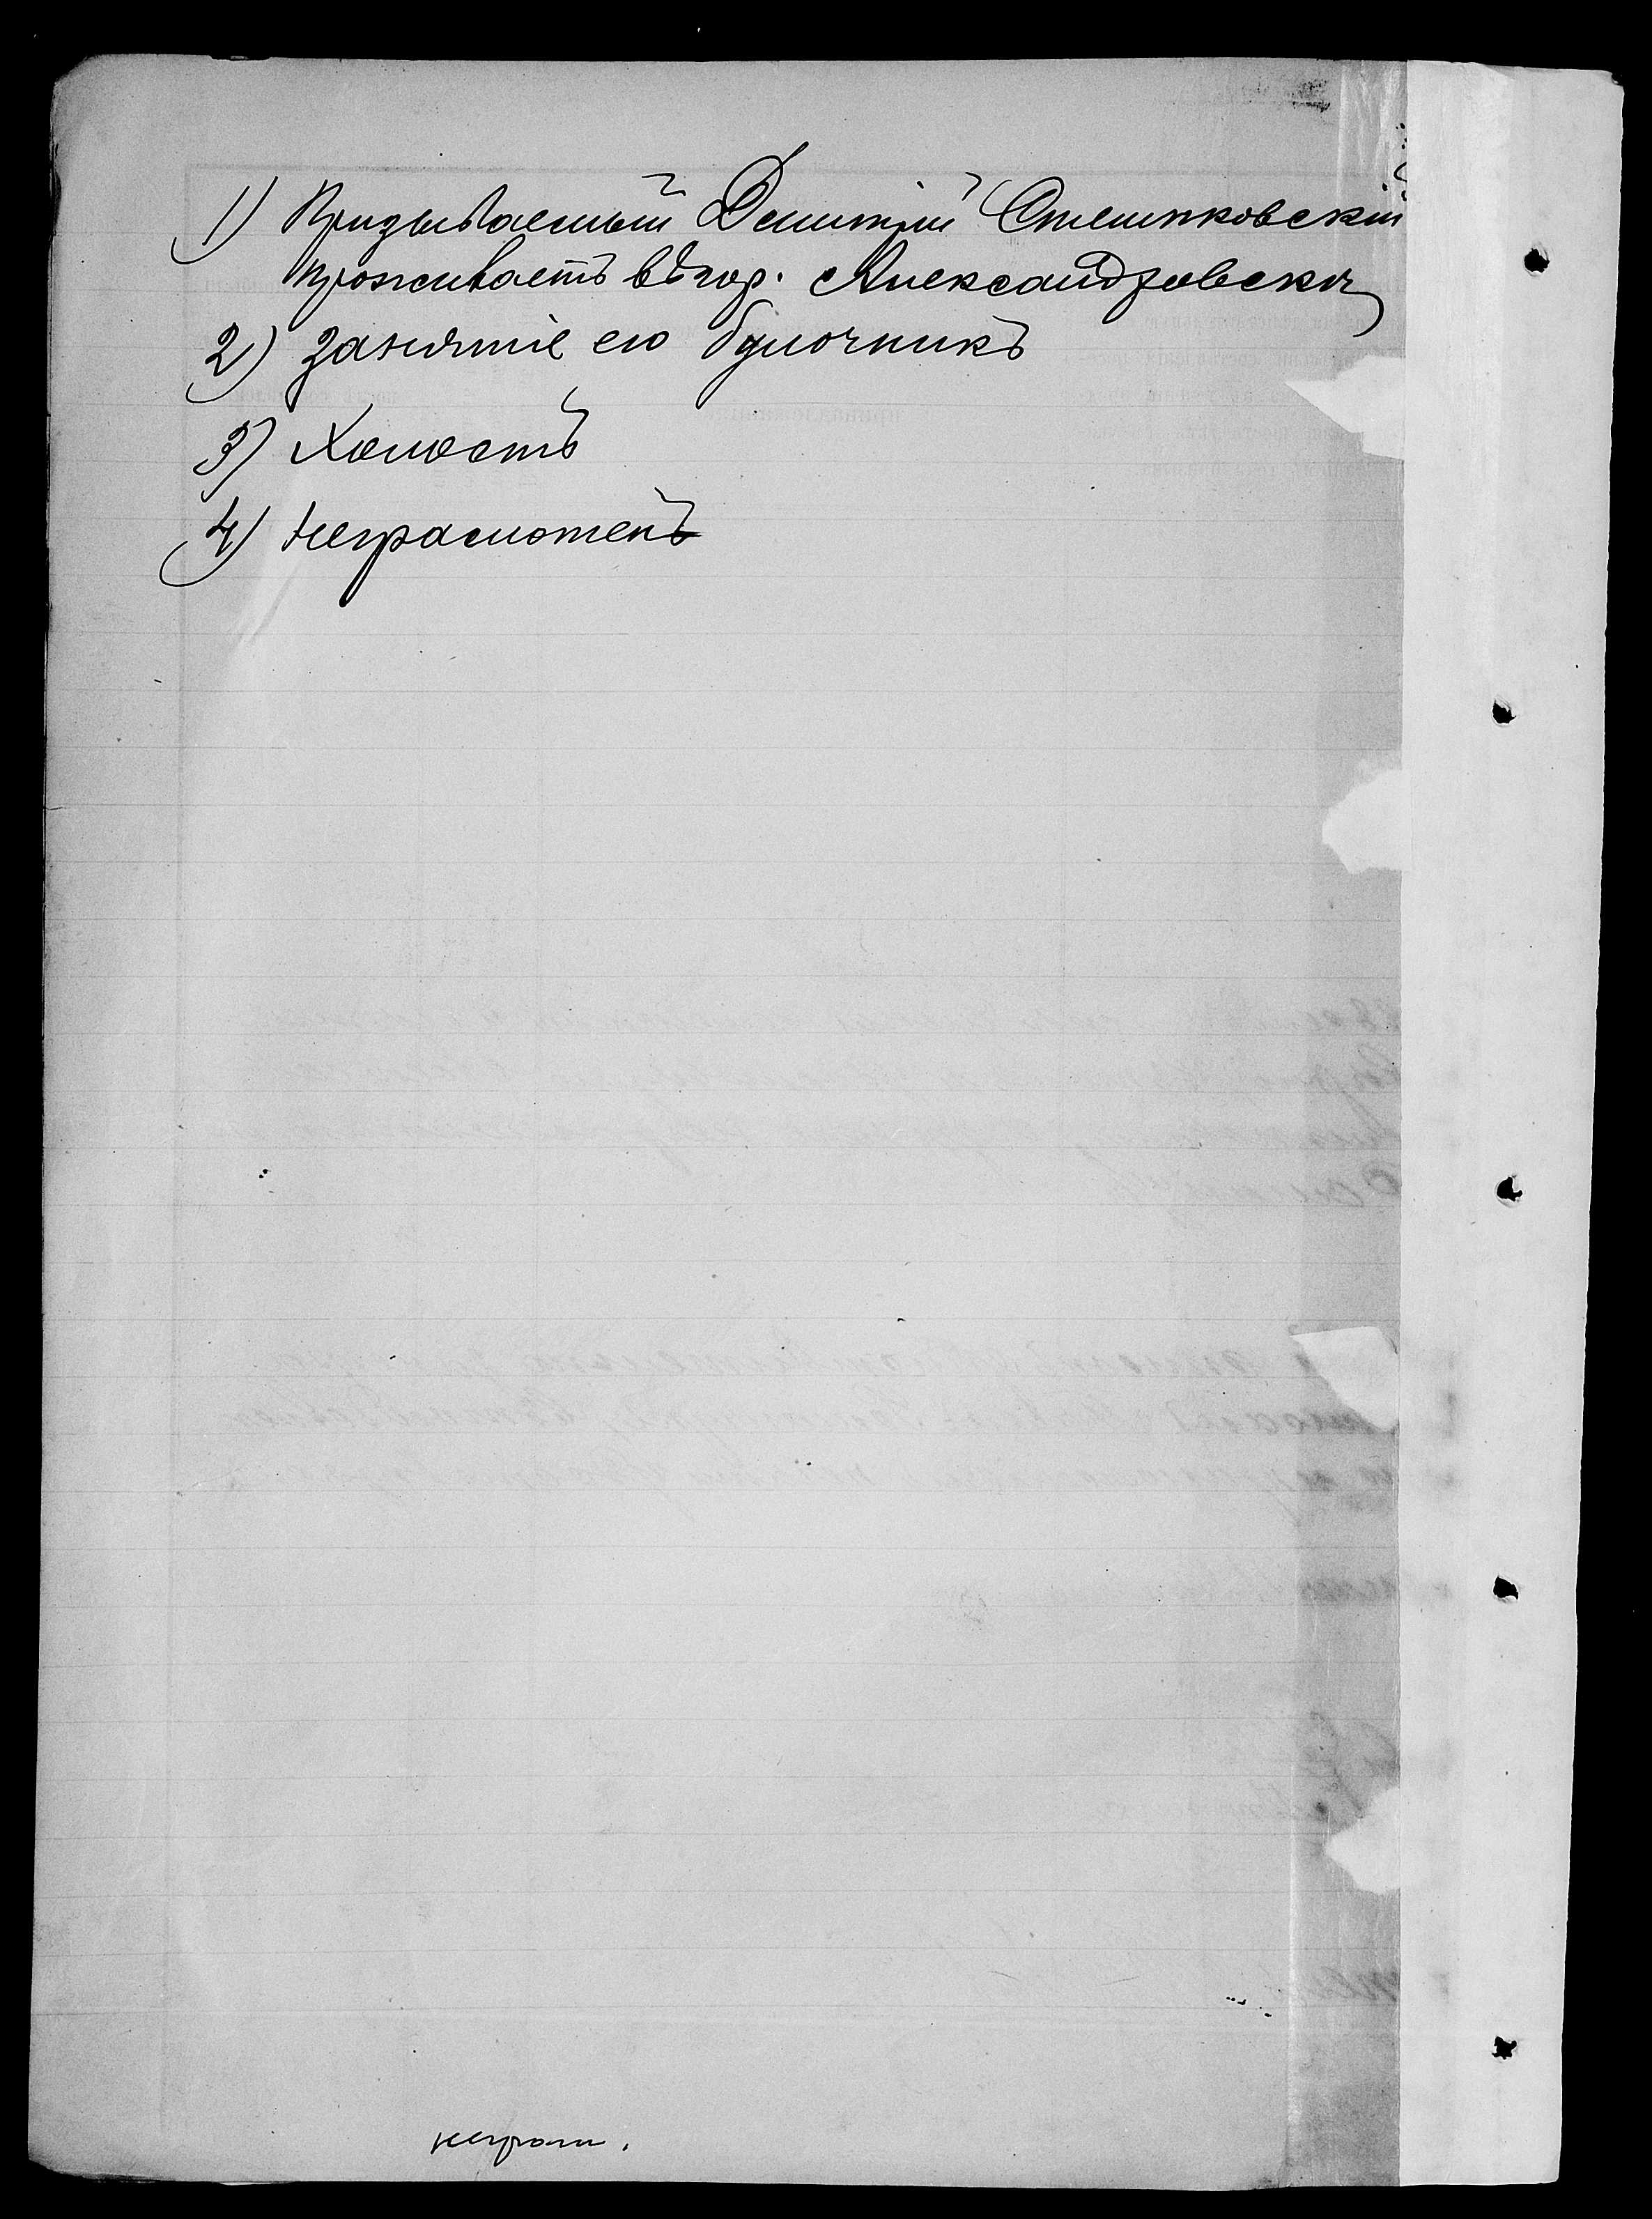 1) Призываемый Димитрій Стешковскій
проживаетъ въ гор. Александровскѣ
2) Занятіе его булочникъ
3) Холостъ
4) Неграмотенъ
неграм.